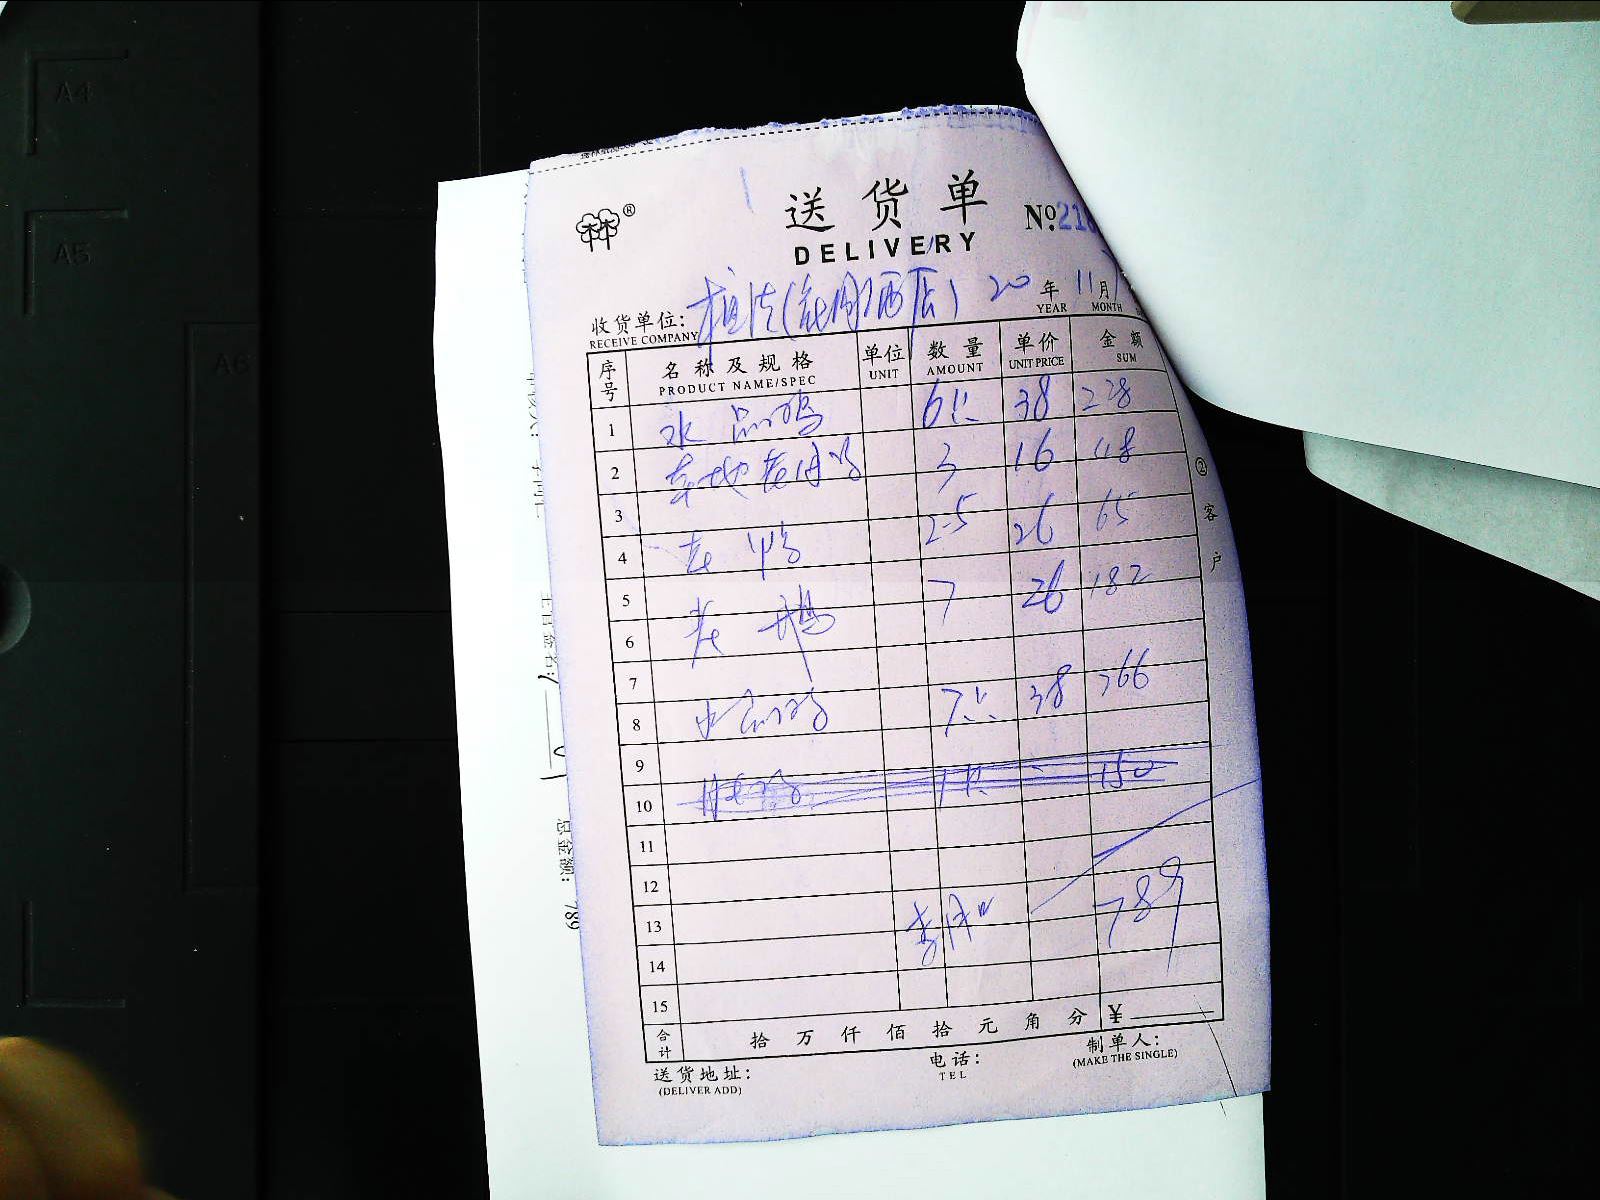 送货单
№216
DELIVERY
20 年 11 月 7
YEAR MONTH
收货单位:
RECEIVE COMPANY
序号 名称及规格 单位 数量 单价 金额
PRODUCT NAME/SPEC UNIT AMOUNT UNIT PRICE SUM
1 水品鸡 6只 38 228
2 本地老肉鸡 3 16 48
3
4 老鸭 2.5 26 65
5
6 老鹅 7 26 182
7
8 水品鸡 7只 38 266
9
10 1只 150
11
12
13 789
14
15
合计 拾 万 仟 佰 拾 元 角 分 ¥
送货地址: 电话: 制单人:
(DELIVER ADD) TEL (MAKE THE SINGLE)
② 客户
总金额: 789
A4
A5
A6